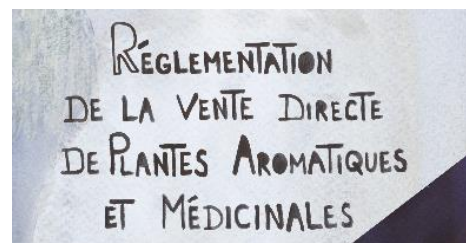 RÉGLEMENTATION
DE LA VENTE DIRECTE
DE PLANTES AROMATIQUES
ET MÉDICINALES